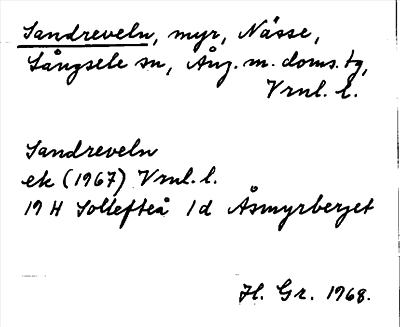 Sandreveln, myr, Nässe,
Långsele sn, Ång. m. doms. tg,
Vrnl. l.
Sandreveln
ek (1967) Vrnl. l.
19 H Sollefteå 1d Åsmyrberget
H. Gr. 1968.